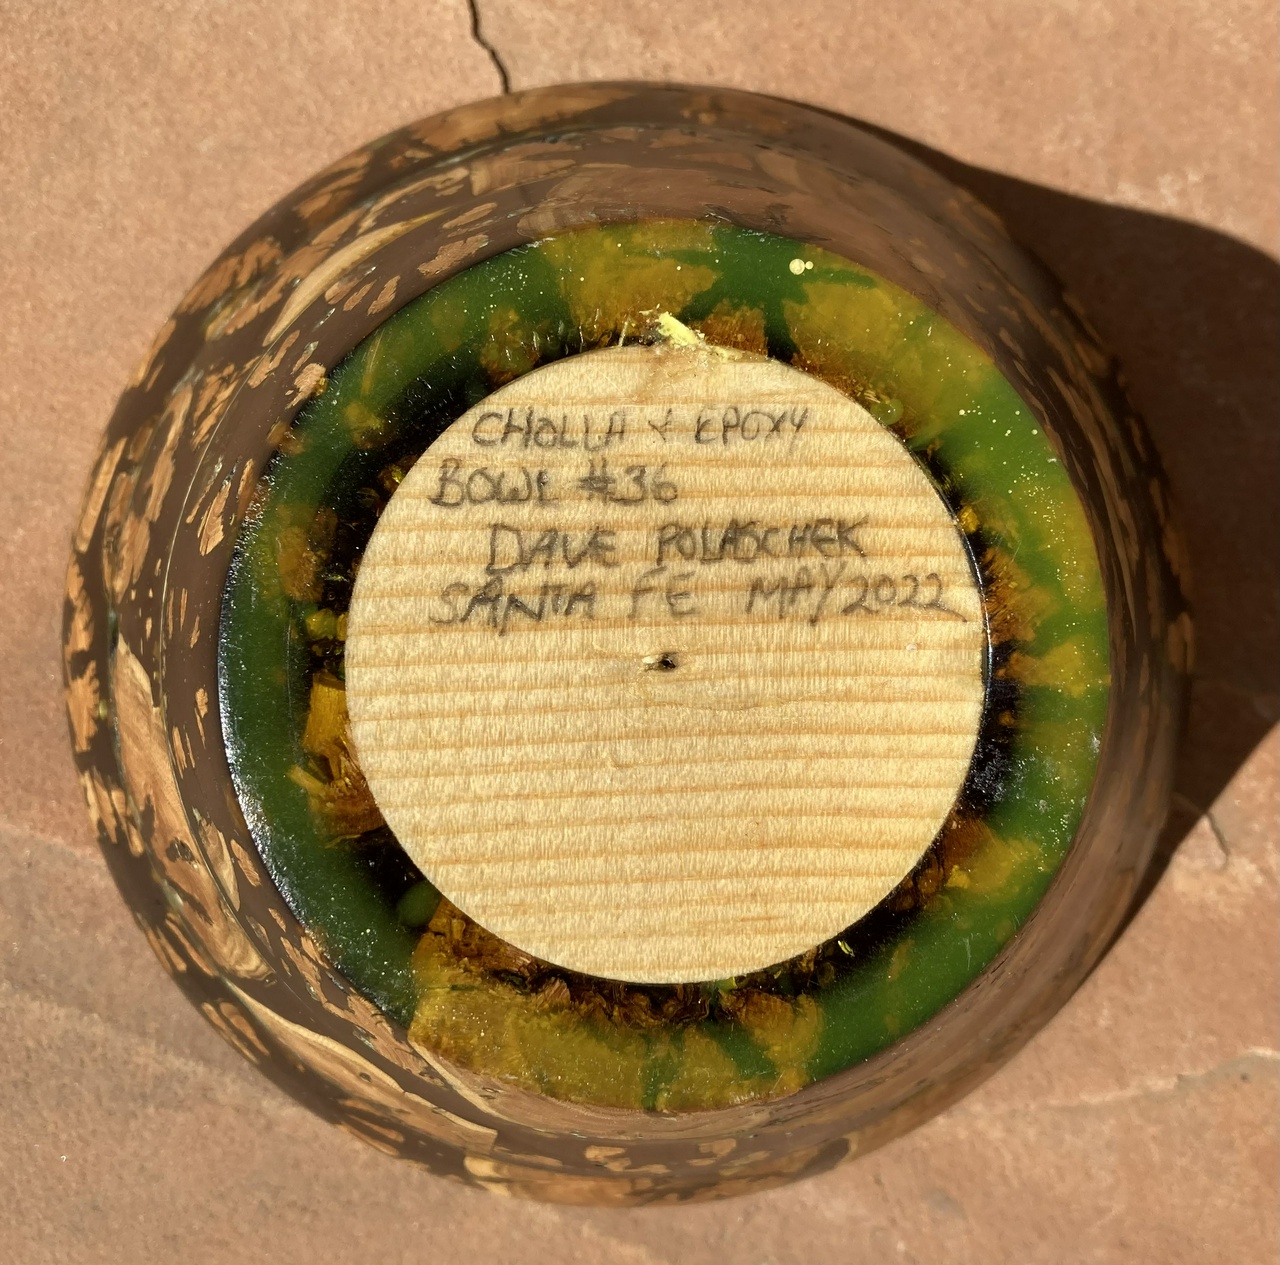 CHOLLA & EPOXY
BOWL #36
DAVE POLASCHEK
SANTA FE MAY 2022